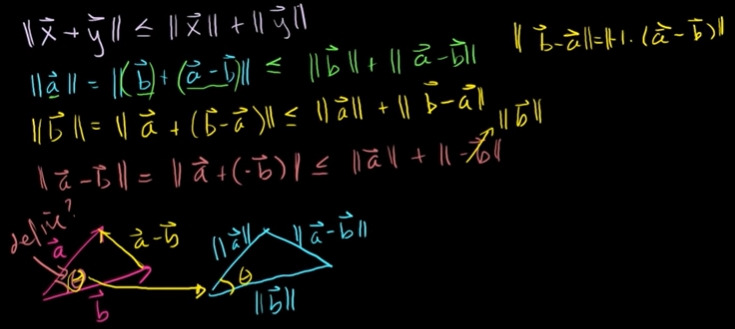 ‖x⃗ + y⃗‖ ≤ ‖x⃗‖ + ‖y⃗‖
‖b⃗ - a⃗‖ = ‖-1·(a⃗ - b⃗)‖
‖a⃗‖ = ‖(b⃗) + (a⃗ - b⃗)‖ ≤ ‖b⃗‖ + ‖a⃗ - b⃗‖
‖b⃗‖ = ‖a⃗ + (b⃗ - a⃗)‖ ≤ ‖a⃗‖ + ‖b⃗ - a⃗‖
‖b⃗‖
‖a⃗ - b⃗‖ = ‖a⃗ + (-b⃗)‖ ≤ ‖a⃗‖ + ‖-b⃗‖
a⃗
a⃗ - b⃗
θ
b⃗
‖a⃗‖
‖a⃗ - b⃗‖
θ
‖b⃗‖